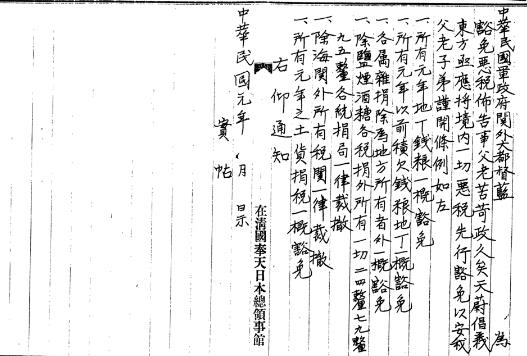 中華民國軍政府関外大都督藍　為
豁免惡稅佈告事父老苦苛政久矣天蔚倡義
東方亟應将境内一切惡稅先行豁免以安我
父老子弟謹開條例如左
一、所有元年地丁錢粮一概豁免
一、所有元年以前積欠錢粮地丁一概豁免
一、各属雜捐除為地方所有者外一概豁免
一、除鹽煙酒糖各稅捐外所有一切二四釐七九釐
九五釐各統捐局一律裁撤
一、除海関外所有稅関一律裁撤
一、所有元年之土貨捐稅一概豁免
右仰通知
中華民國元年　月　日示
實帖
在淸國奉天日本總領事館